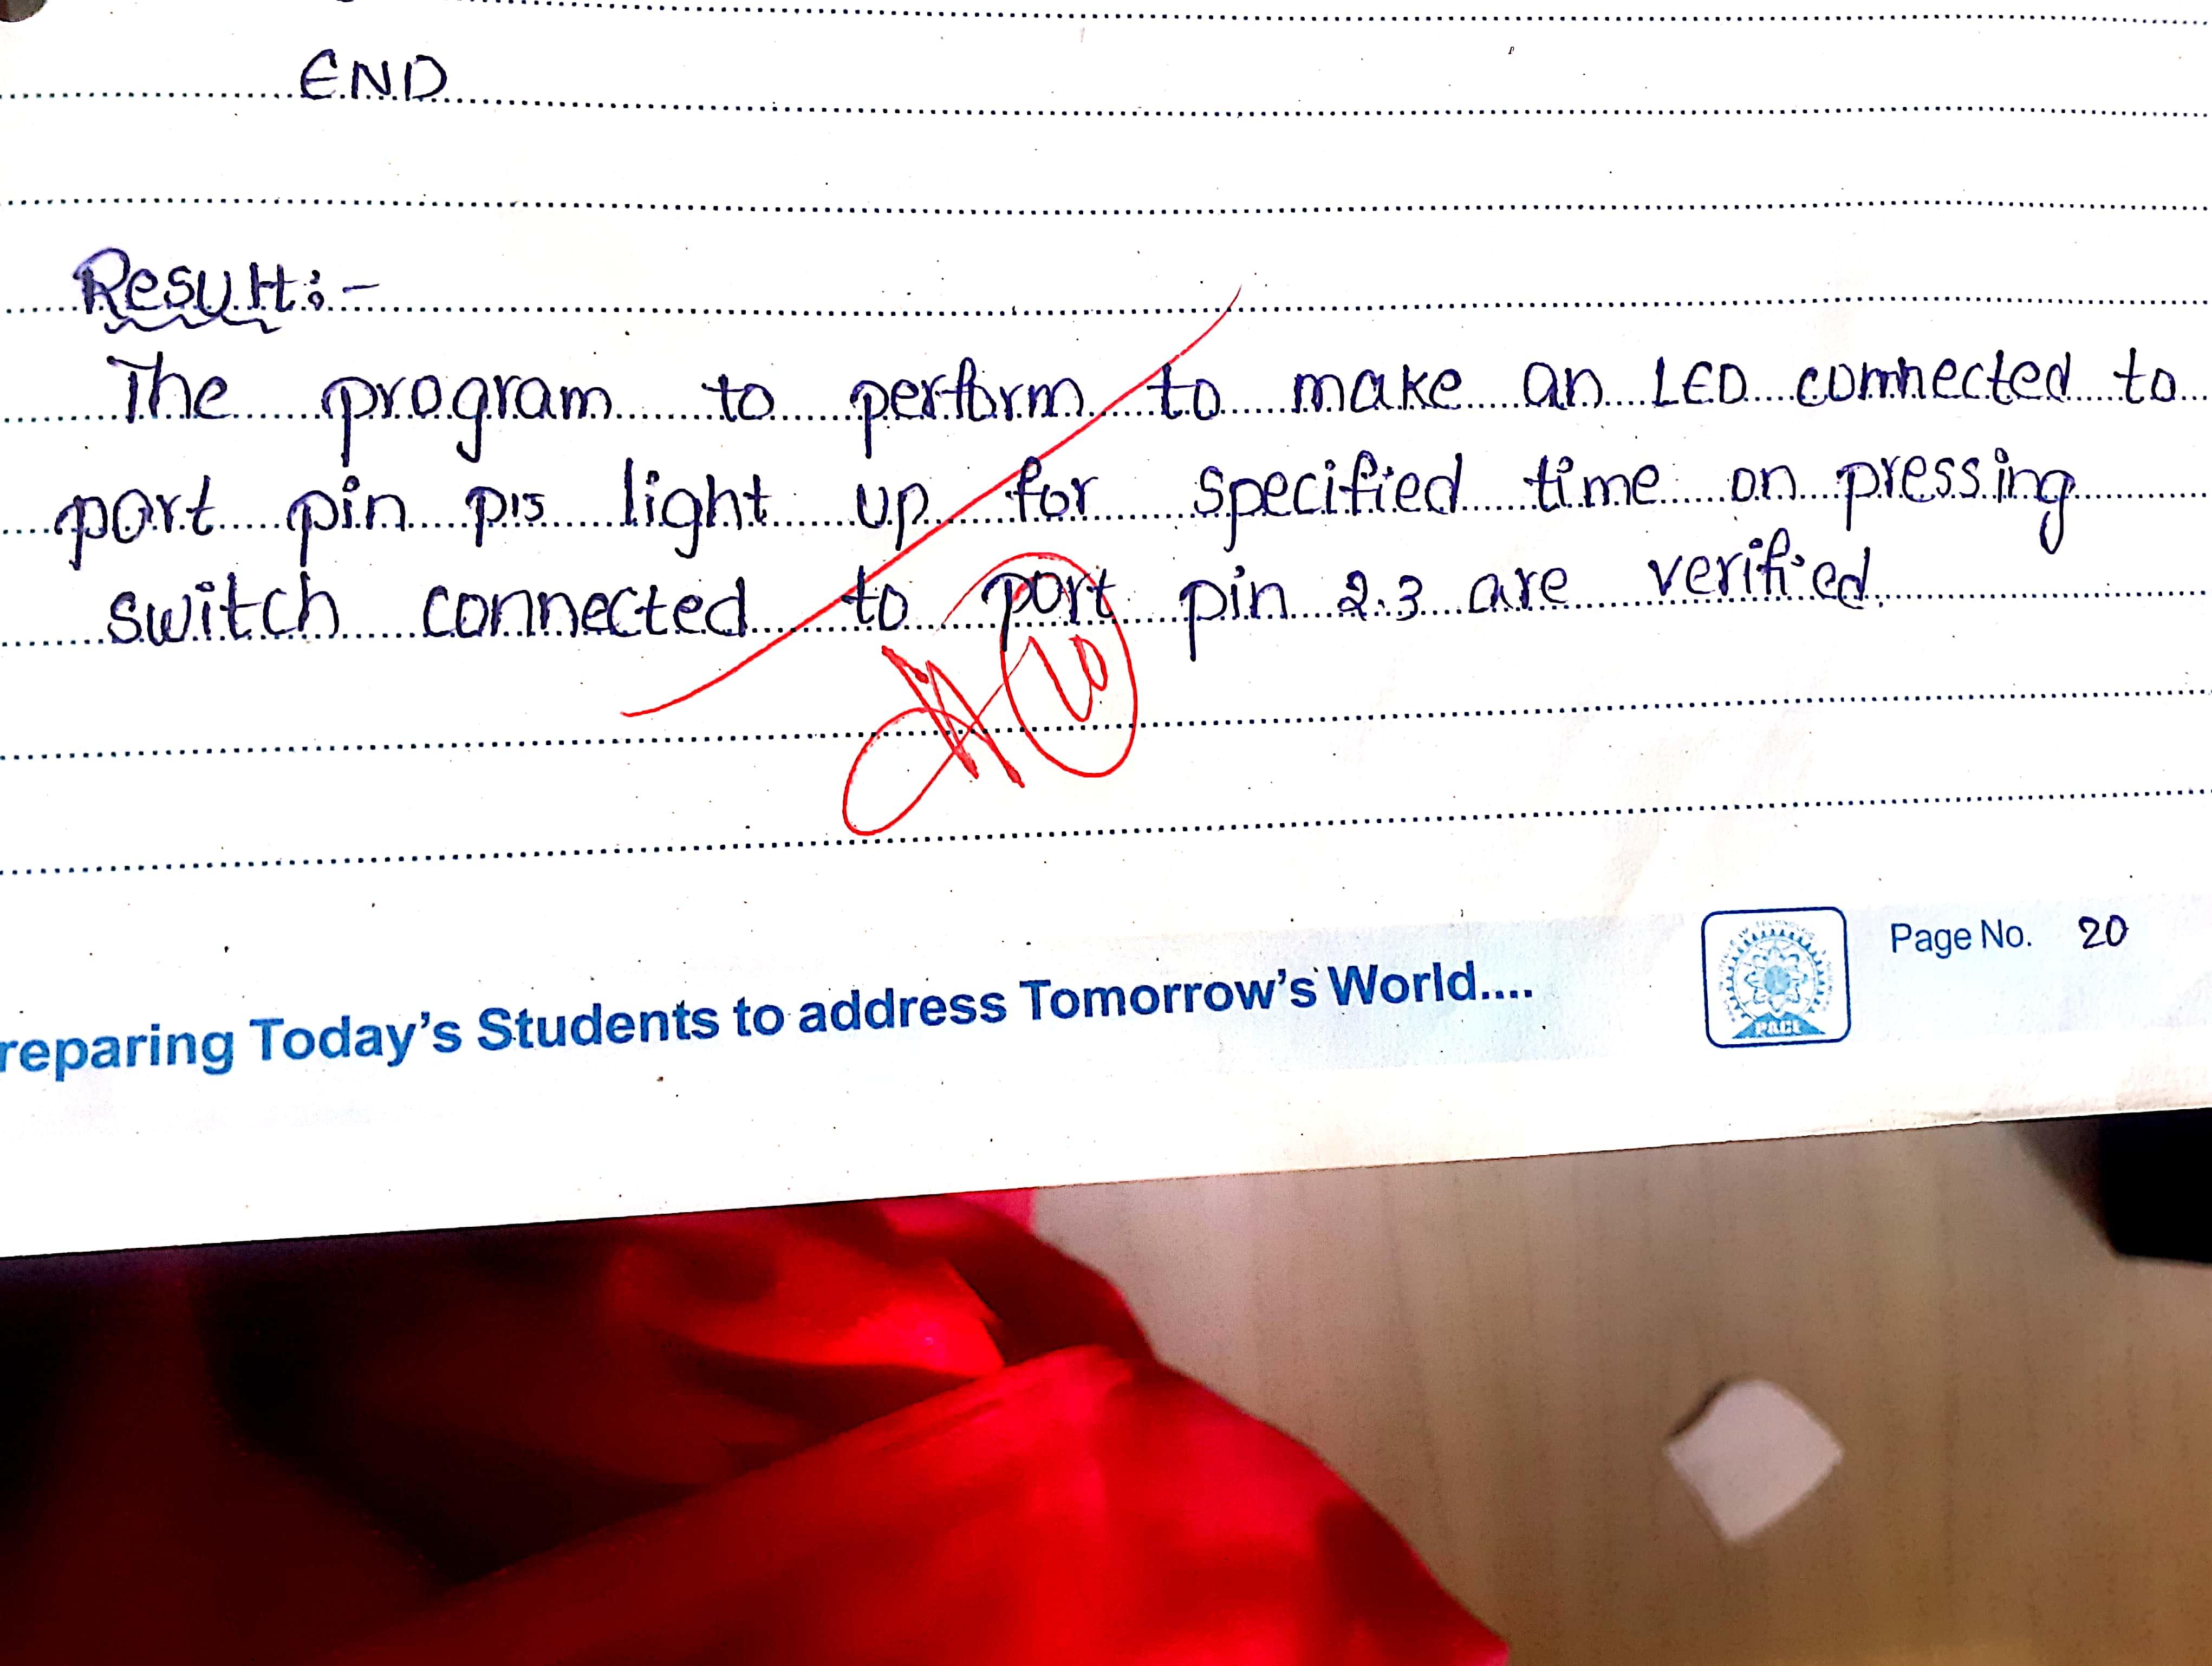 END
Result:-
The program to perform to make an LED comnected to
port pin p15 light up for specified time on pressing
switch connected to port pin 2.3 are verified.
10
reparing Today's Students to address Tomorrow's World....
PACE
Page No. 20